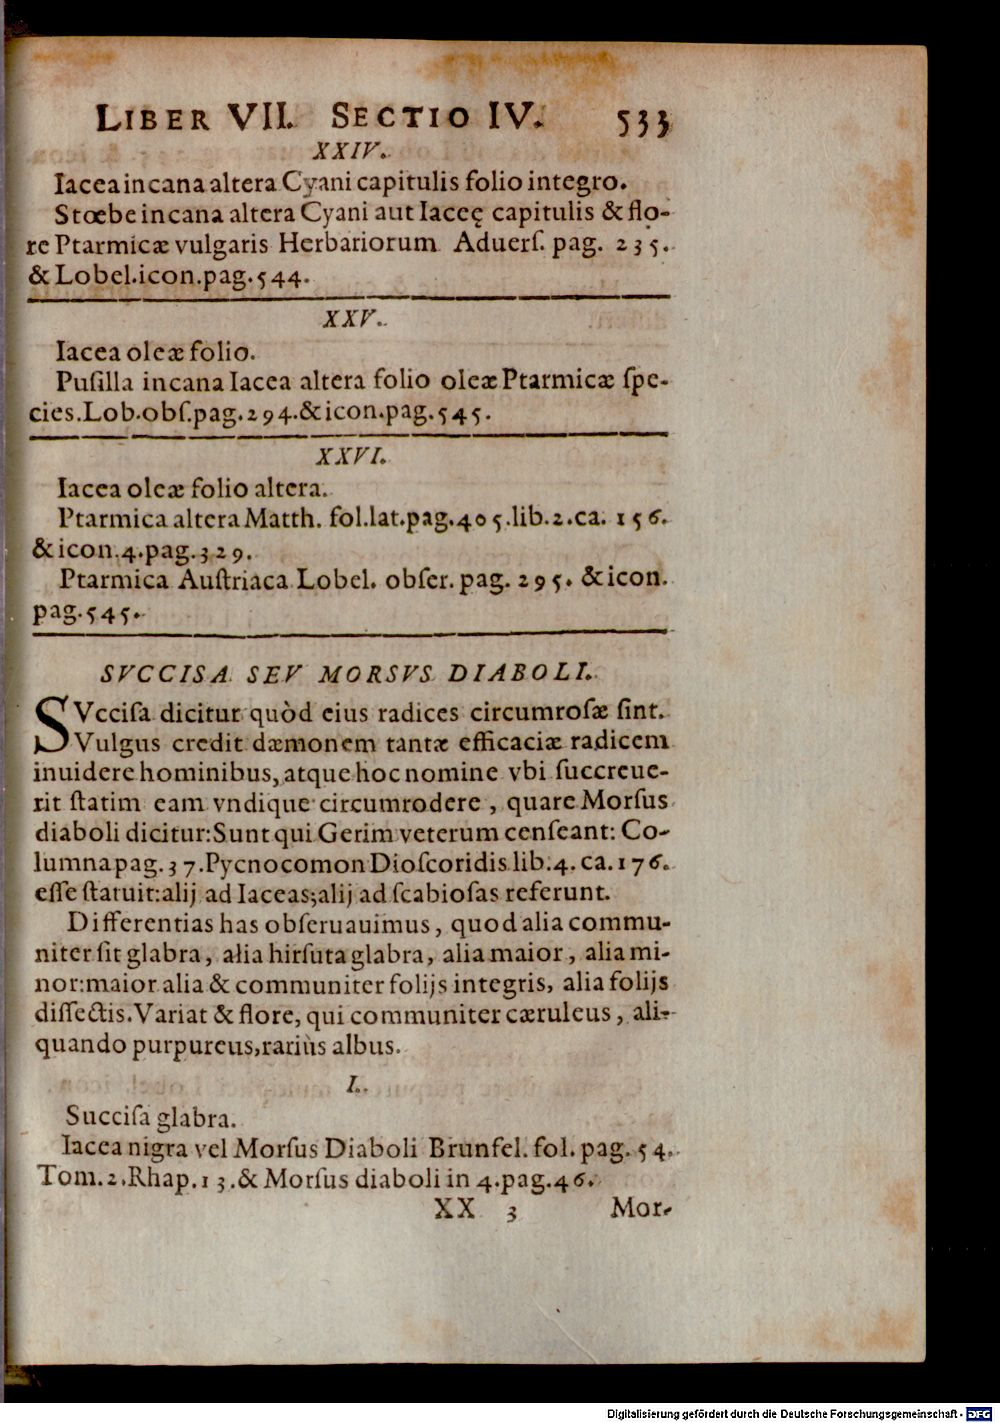 LIBER VII. SECTIO IV. 533
XXIV.
Iacea incana altera Cyani capitulis folio integro.
Stœbe incana altera Cyani aut Iaceę capitulis & flo-
re Ptarmicæ vulgaris Herbariorum Aduerſ. pag. 235.
& Lobel.icon.pag.544.
XXV.
Iacea oleæ folio.
Puſilla incana Iacea altera folio oleæ Ptarmicæ ſpe-
cies.Lob.obſ.pag.294.& icon.pag.545.
XXVI.
Iacea oleæ folio altera.
Ptarmica altera Matth. fol.lat.pag.405.lib.2.ca. 156.
& icon.4.pag.329.
Ptarmica Auſtriaca Lobel. obſer. pag. 295. & icon.
pag.545.
SVCCISA SEV MORSVS DIABOLI.
SVcciſa dicitur quòd eius radices circumroſæ ſint.
Vulgus credit dæmonem tantæ efficaciæ radicem
inuidere hominibus, atque hoc nomine vbi ſuccreue-
rit ſtatim eam vndique circumrodere, quare Morſus
diaboli dicitur: Sunt qui Gerim veterum cenſeant: Co-
lumna pag.37.Pycnocomon Dioſcoridis lib.4. ca.176.
eſſe ſtatuit: alij ad Iaceas; alij ad ſcabioſas referunt.
Differentias has obſeruauimus, quod alia commu-
niter ſit glabra, alia hirſuta glabra, alia maior, alia mi-
nor: maior alia & communiter folijs integris, alia folijs
diſſectis. Variat & flore, qui communiter cæruleus, ali-
quando purpureus, rariùs albus.
I.
Succiſa glabra.
Iacea nigra vel Morſus Diaboli Brunfel. fol. pag. 54.
Tom.2.Rhap.13.& Morſus diaboli in 4.pag.46.
XX 3 Mor-
Digitalisierung gefördert durch die Deutsche Forschungsgemeinschaft - DFG